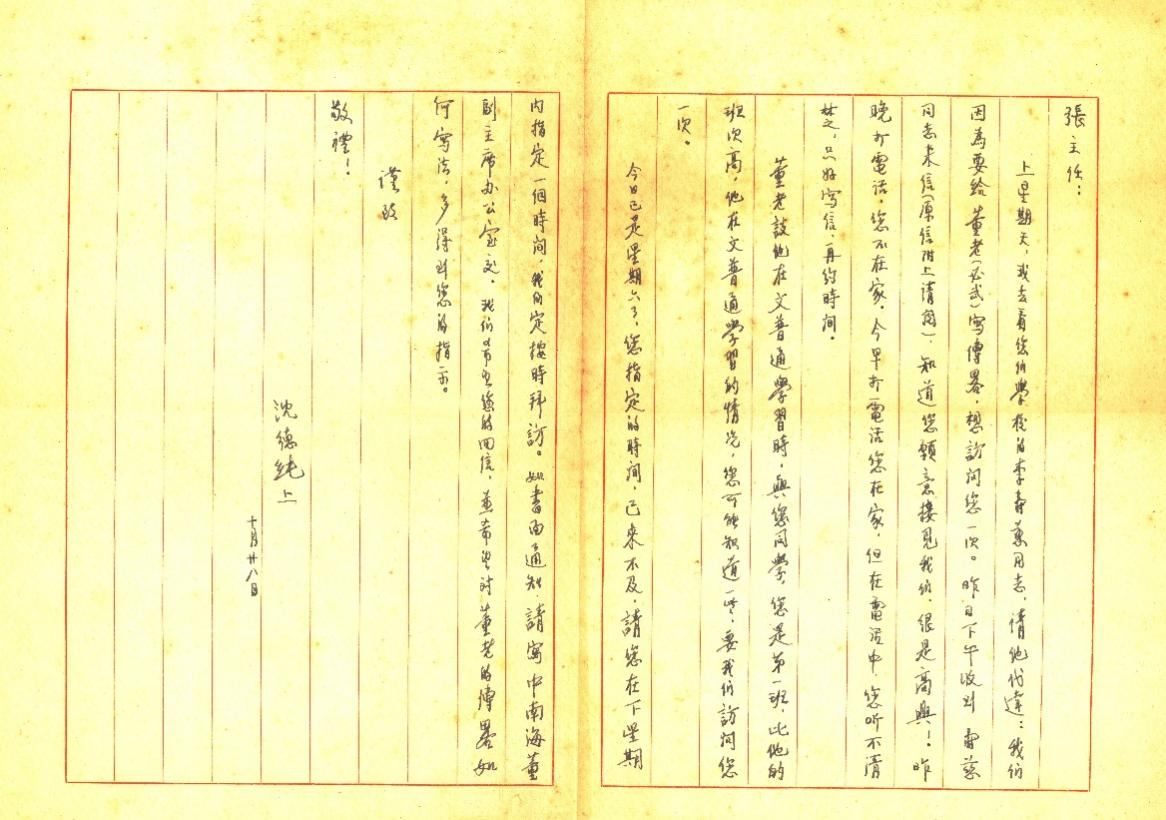 張主任：
上星期天，我去看您的學校的李壽萱同志，請他代達：我們
因為要給董老（必武）寫傳畧，想訪問您一次。昨日下午收到
同志來信（原信附上請閱），知道您願意接見我們，很是高興！昨
晚打電話，您不在家，今早打電話您在家，但在電話中，您听不清
楚，只好寫信，再約時間。
董老談他在文普通學習時，與您同學，您是第一班，比他的
班次高，他在文普通學習的情況，您可能知道一些，要我們訪問您
一次。
今日已是星期六了，您指定的時間，已來不及，請您在下星期
内指定一個時间，我们定按時拜訪。如書面通知，請寄中南海董
副主席办公室交。我们希望您的回信，並希望对董老的傳畧如
何寫法，多得到您的指示。
謹致
敬禮！
沈德純上
十月廿八日